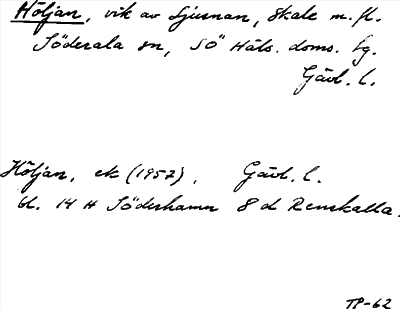 Höljan, vik av Ljusnan, Skale m. fl.
Söderala sn, SÖ Häls. doms. tg.
Gävl. l.
Höljan, ek (1957), Gävl. l.
bl. 14 H Söderhamn 8 d Renskalla.
TP-62